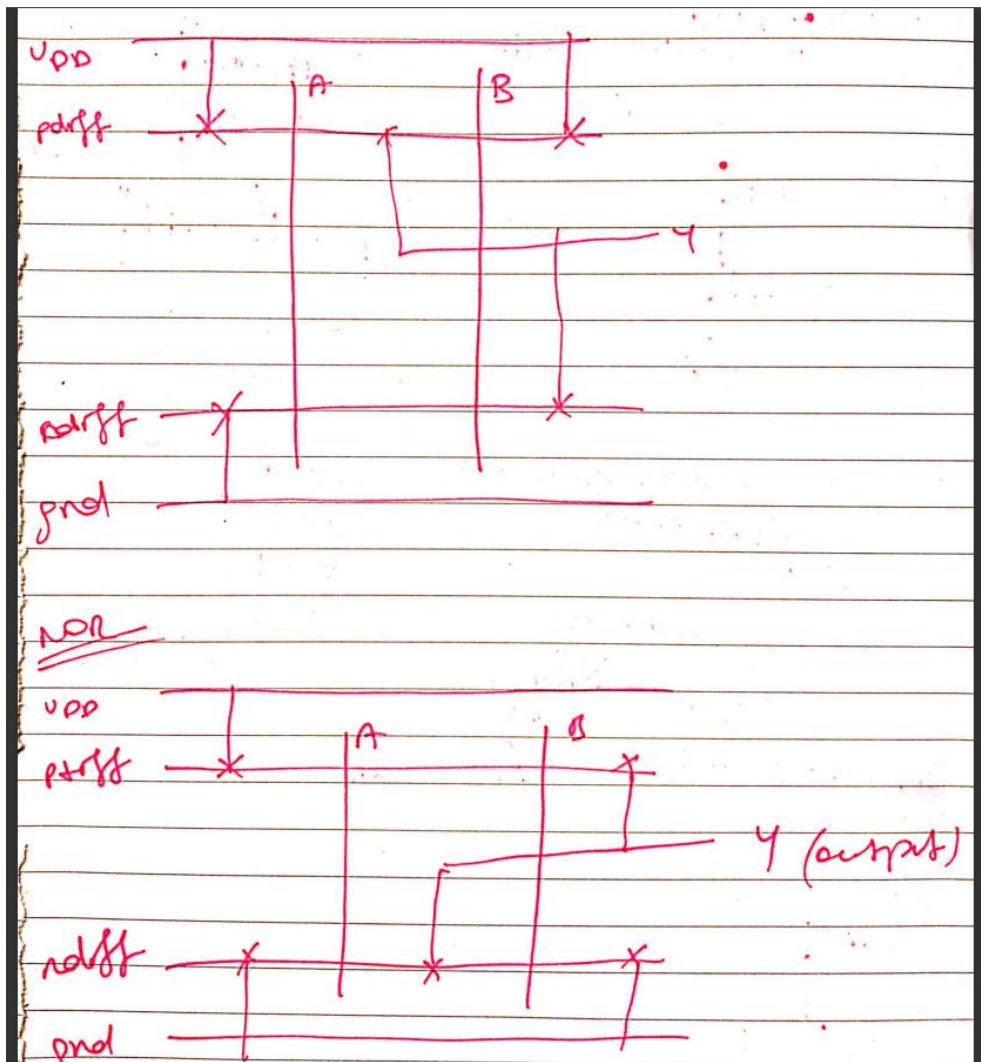 VDD
A B
pdiff
Y
ndiff
gnd
NOR
VDD
A B
pdiff
Y (output)
ndiff
gnd